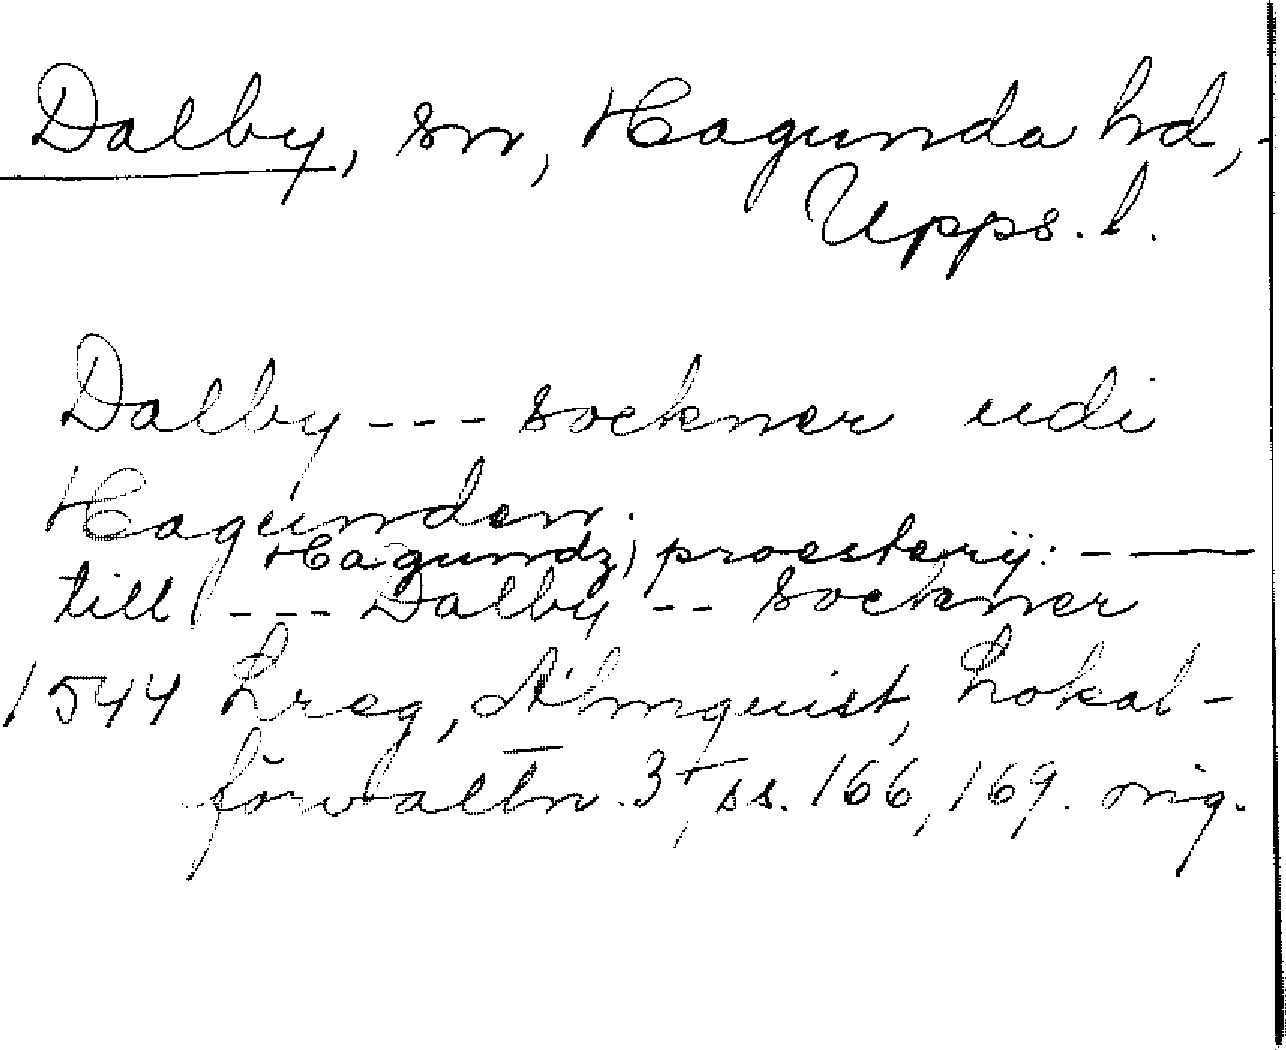 Dalby, sn, Hagunda hd,
Upps. l.
Dalby --- sockner udi
Hagunden.
Hagundz) proesterij: - —
till (--- Dalby -- Sockner
1544 Lreg, Almquist, Lokal-
förvaltn. 3, ss. 166, 169. orig.